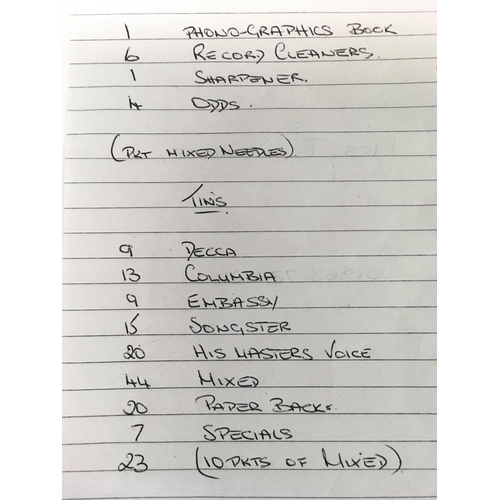 1 PHONO-GRAPHICS BOOK
6 RECORD CLEANERS.
1 SHARPENER.
4 ODDS.
(PKT MIXED NEEDLES)
TINS
9 DECCA
13 COLUMBIA
9 EMBASSY
15 SONGSTER
20 HIS MASTERS VOICE
44 MIXED
20 PAPER BACKS
7 SPECIALS
23 (10 PKTS OF MIXED)